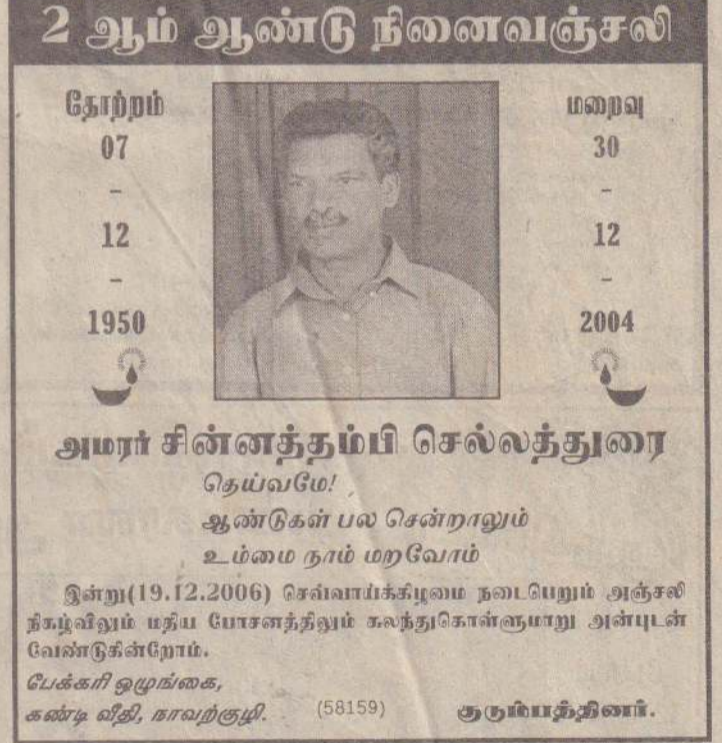 2 ஆம் ஆண்டு நினைவஞ்சலி
தோற்றம்
07
-
12
-
1950
மறைவு
30
-
12
-
2004
அமரர் சின்னத்தம்பி செல்லத்துரை
தெய்வமே!
ஆண்டுகள் பல சென்றாலும்
உம்மை நாம் மறவோம்
இன்று(19.12.2006) செவ்வாய்க்கிழமை நடைபெறும் அஞ்சலி
நிகழ்விலும் மதிய போசனத்திலும் கலந்துகொள்ளுமாறு அன்புடன்
வேண்டுகின்றோம்.
பேக்கரி ஒழுங்கை,
கண்டி வீதி, நாவற்குழி. (58159) குடும்பத்தினர்.